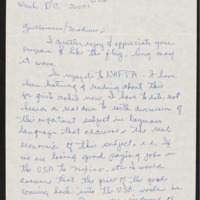 Wash DC 20001
Gentlemen/Madams,
I greatly enjoy & appreciate your
program & like the flag, long may
it wave.
In regards to NAFTA. I have
been hearing & reading about this
for quite awhile now. I have to date, not
heard a good down to earth discussion of
this important subject in laymans
language that addresses the real
economics of this subject, i.e. If
we are losing good paying jobs in
the USA to Mexico, etc. I would
assume that the price of the goods
coming back into the USA would be